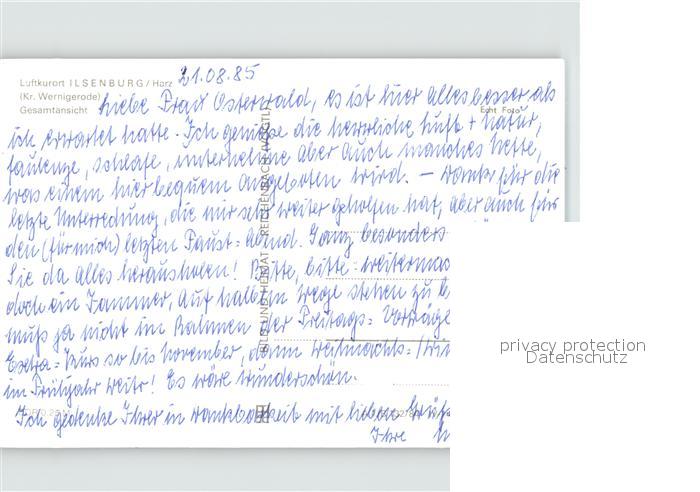 Luftkurort ILSENBURG / Harz
(Kr. Wernigerode)
Gesamtansicht
21.08.85
Echt Foto
Liebe Frau Osterwald, es ist hier alles besser als
ich erwartet hatte. Ich genieße die herrliche Luft + Natur,
faulenze, schlafe, unternehme aber auch manches Nette,
was einem hier bequem angeboten wird. – Dank für die
letzte Unterredung, die mir sehr weiter geholfen hat, aber auch für
den (für mich) letzten Faust-Abend. Ganz besonders
Sie da alles herausholen! Bitte, bitte weitermac
doch ein Jammer, auf halbem Wege stehen zu b
muß ja nicht im Rahmen der Freitags-Vorträge
Extra-Kurs so bis November, dann Weihnachts-
im Frühjahr weitr! Es wäre wunderschön.
Ich gedenke Ihrer in Dankbarkeit mit lieben Grüß
Ihre
BILD UND HEIMAT REICHENBACH (VOGTL)
privacy protection
Datenschutz